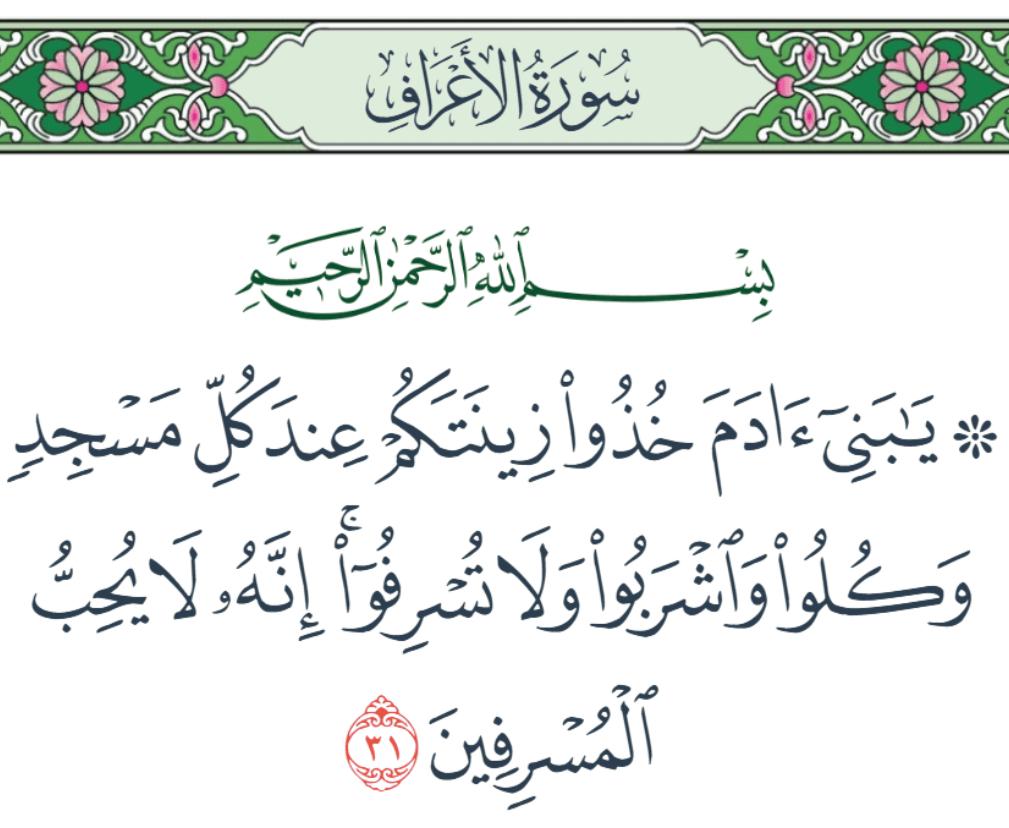 سُورَةُ الأَعْرَافِ
بِسْمِ ٱللَّهِ ٱلرَّحْمَٰنِ ٱلرَّحِيمِ
۞ يَـٰبَنِىٓ ءَادَمَ خُذُوا۟ زِينَتَكُمْ عِندَ كُلِّ مَسْجِدٍ
وَكُلُوا۟ وَٱشْرَبُوا۟ وَلَا تُسْرِفُوٓا۟ ۚ إِنَّهُۥ لَا يُحِبُّ
ٱلْمُسْرِفِينَ ٣١